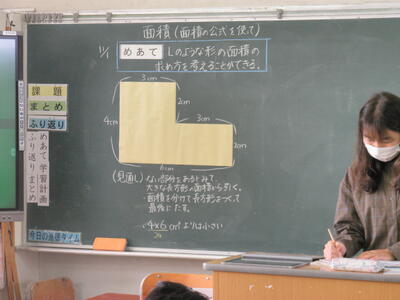 面積(面積の公式を使って)
11/1
めあて Lのような形の面積の
求め方を考えることができる。
3cm
2cm
3cm
4cm
2cm
6cm
(見通し)ない部分をあるとみて、
大きな長方形の面積から引く。
・面積を分けて長方形をつくって
最後にたす。
・4×6cm²よりは小さい
24
課題
まとめ
ふり返り
めあて
学習計画
ふり返り
まとめ